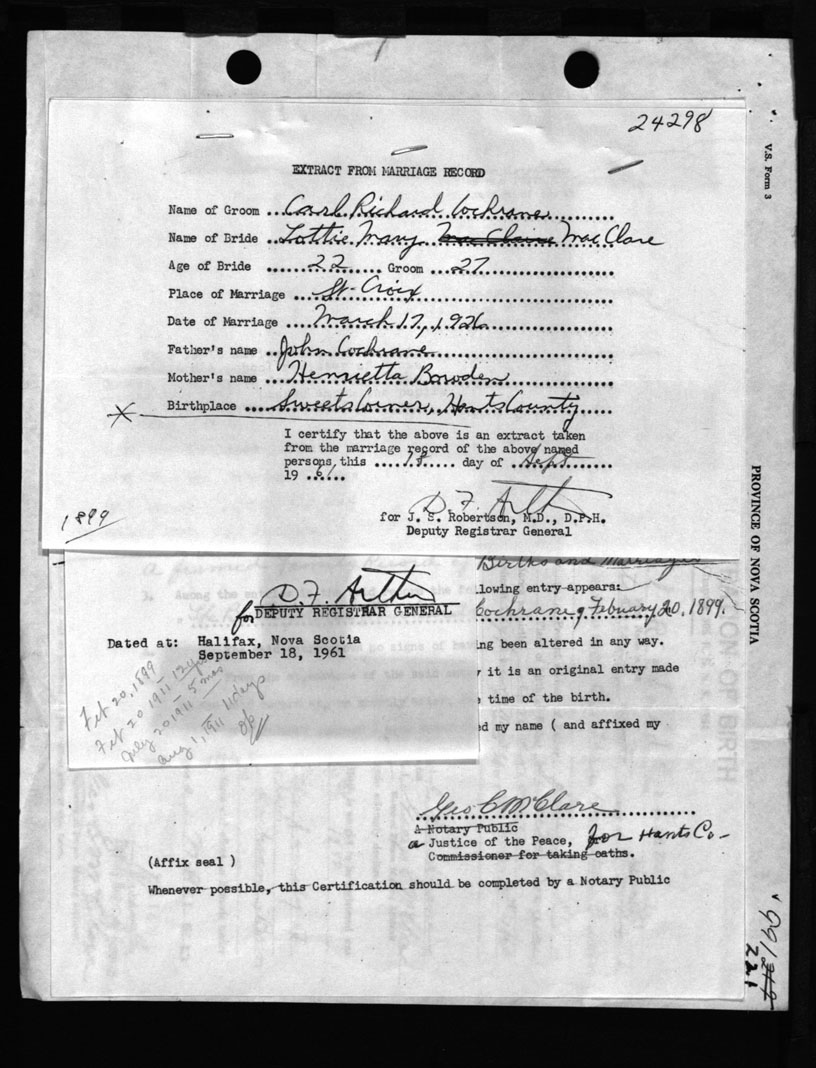 24298
V.S. Form 3
EXTRACT FROM MARRIAGE RECORD
Name of Groom ... Carl Richard Cochrane
Name of Bride .. Lottie Mary Mac Claire Mac Clare
Age of Bride ...... 22 ...... Groom ... 27
Place of Marriage ... St. Croix
Date of Marriage ... March 17, 1926
Father's name .. John Cochrane
Mother's name .. Henrietta Bowden
Birthplace .... Sweets Corner, Hants County
I certify that the above is an extract taken
from the marriage record of the above named
persons, this .... 18 ..... day of .. Sept.
19 .61...
1899
D. F. Arthur
for J. S. Robertson, M.D., D.P.H.
Deputy Registrar General
PROVINCE OF NOVA SCOTIA
Births and Marriages
llowing entry appears:
Cochrane, Febuary 20, 1899.
D. F. Arthur
for DEPUTY REGISTRAR GENERAL
Dated at: Halifax, Nova Scotia
September 18, 1961
ing been altered in any way.
it is an original entry made
time of the birth.
ed my name ( and affixed my
Feb 20, 1899
Feb 20 1911 12 yrs
July 20 1911 5 mos
Aug 1, 1911 11 days
ON OF BIRTH
Geo C McClare
A Notary Public
a Justice of the Peace, for Hants Co-
Commissioner for taking oaths.
(Affix seal )
Whenever possible, this Certification should be completed by a Notary Public
221